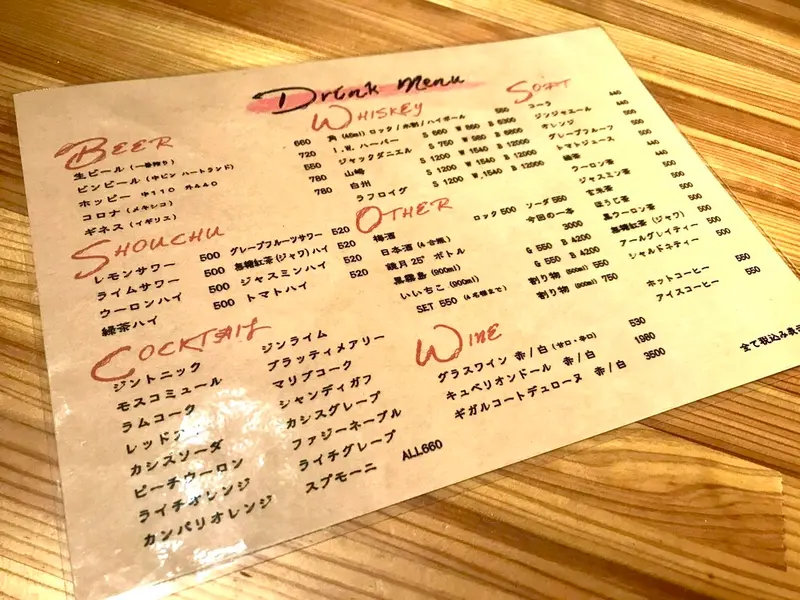 Drink Menu
BEER
生ビール (一番搾り) 660
ビンビール (中ビン ハートランド) 720
ホッピー 中110 外440 550
コロナ (メキシコ) 780
ギネス (イギリス) 780
SHOUCHU
レモンサワー 500 グレープフルーツサワー 520
ライムサワー 500 無糖紅茶(ジャワ)ハイ 520
ウーロンハイ 500 ジャスミンハイ 520
緑茶ハイ 500 トマトハイ 520
COCKTAIL
ジントニック ジンライム
モスコミュール ブラッティメアリー
ラムコーク マリブコーク
レッド シャンディガフ
カシスソーダ カシスグレープ
ピーチウーロン ファジーネーブル
ライチオレンジ ライチグレープ
カンパリオレンジ スプモーニ ALL660
WHISKEY
角 (45ml) ロック / 水割 / ハイボール 550
I.W. ハーパー S 660 W 860 B 6300
ジャックダニエル S 750 W 980 B 8800
山崎 S 1200 W 1540 B 12000
白州 S 1200 W 1540 B 12000
ラフロイグ S 1200 W 1540 B 12000
OTHER
梅酒 ロック 500 ソーダ 550
日本酒 (4合瓶) 今回の一本
鏡月 25° ボトル 3000
黒霧島 (900ml) G 550 B 4200
いいちこ (900ml) G 550 B 4200
SET 550 (4名様まで) 割り物 (500ml) 550
割り物 (900ml) 750
WINE
グラスワイン 赤/白 (甘口・辛口) 530
キュベリオンドール 赤/白 1980
ギガルコートデュローヌ 赤/白 3500
SOFT
コーラ 440
ジンジャエール 440
オレンジ 440
グレープフルーツ 500
トマトジュース 500
緑茶 440
ウーロン茶 440
ジャスミン茶 500
玄米茶 500
ほうじ茶 500
黒ウーロン茶 500
無糖紅茶 (ジャワ) 500
アールグレイティー 500
シャルドネティー 500
ホットコーヒー 550
アイスコーヒー 550
全て税込み表示